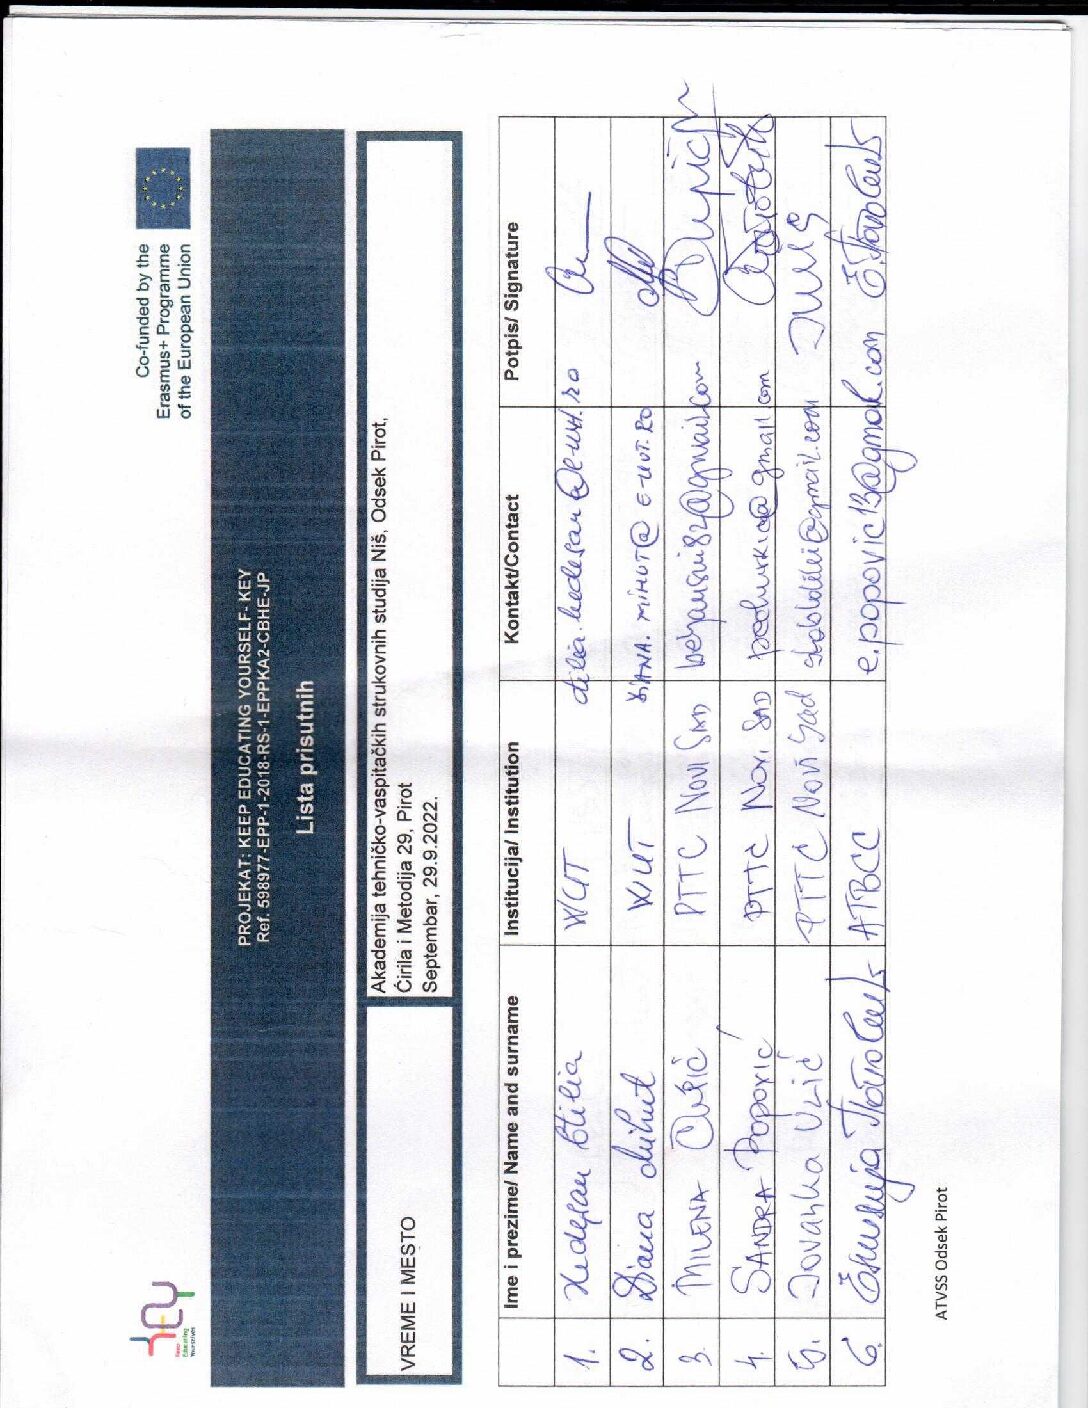 Keep
Educating
Yourselves
Co-funded by the
Erasmus+ Programme
of the European Union
PROJEKAT: KEEP EDUCATING YOURSELF- KEY
Ref. 598977-EPP-1-2018-RS-1-EPPKA2-CBHE-JP
Lista prisutnih
VREME I MESTO
Akademija tehničko-vaspitačkih strukovnih studija Niš, Odsek Pirot,
Ćirila i Metodija 29, Pirot
Septembar, 29.9.2022.
Ime i prezime/ Name and surname Institucija/ Institution Kontakt/Contact Potpis/ Signature
1. Hedeșan Otilia WUT otilia.hedesan@e-uvt.ro
2. Diana Mihuț WUT DIANA.MIHUT@E-UVT.RO
3. MILENA PTTC NOVI SAD
4. SANDRA POPOVIĆ PTTC NOVI SAD
5. Jovanka Ulić PTTC Novi Sad
6. ATBCC e.popovic13@gmail.com
ATVSS Odsek Pirot